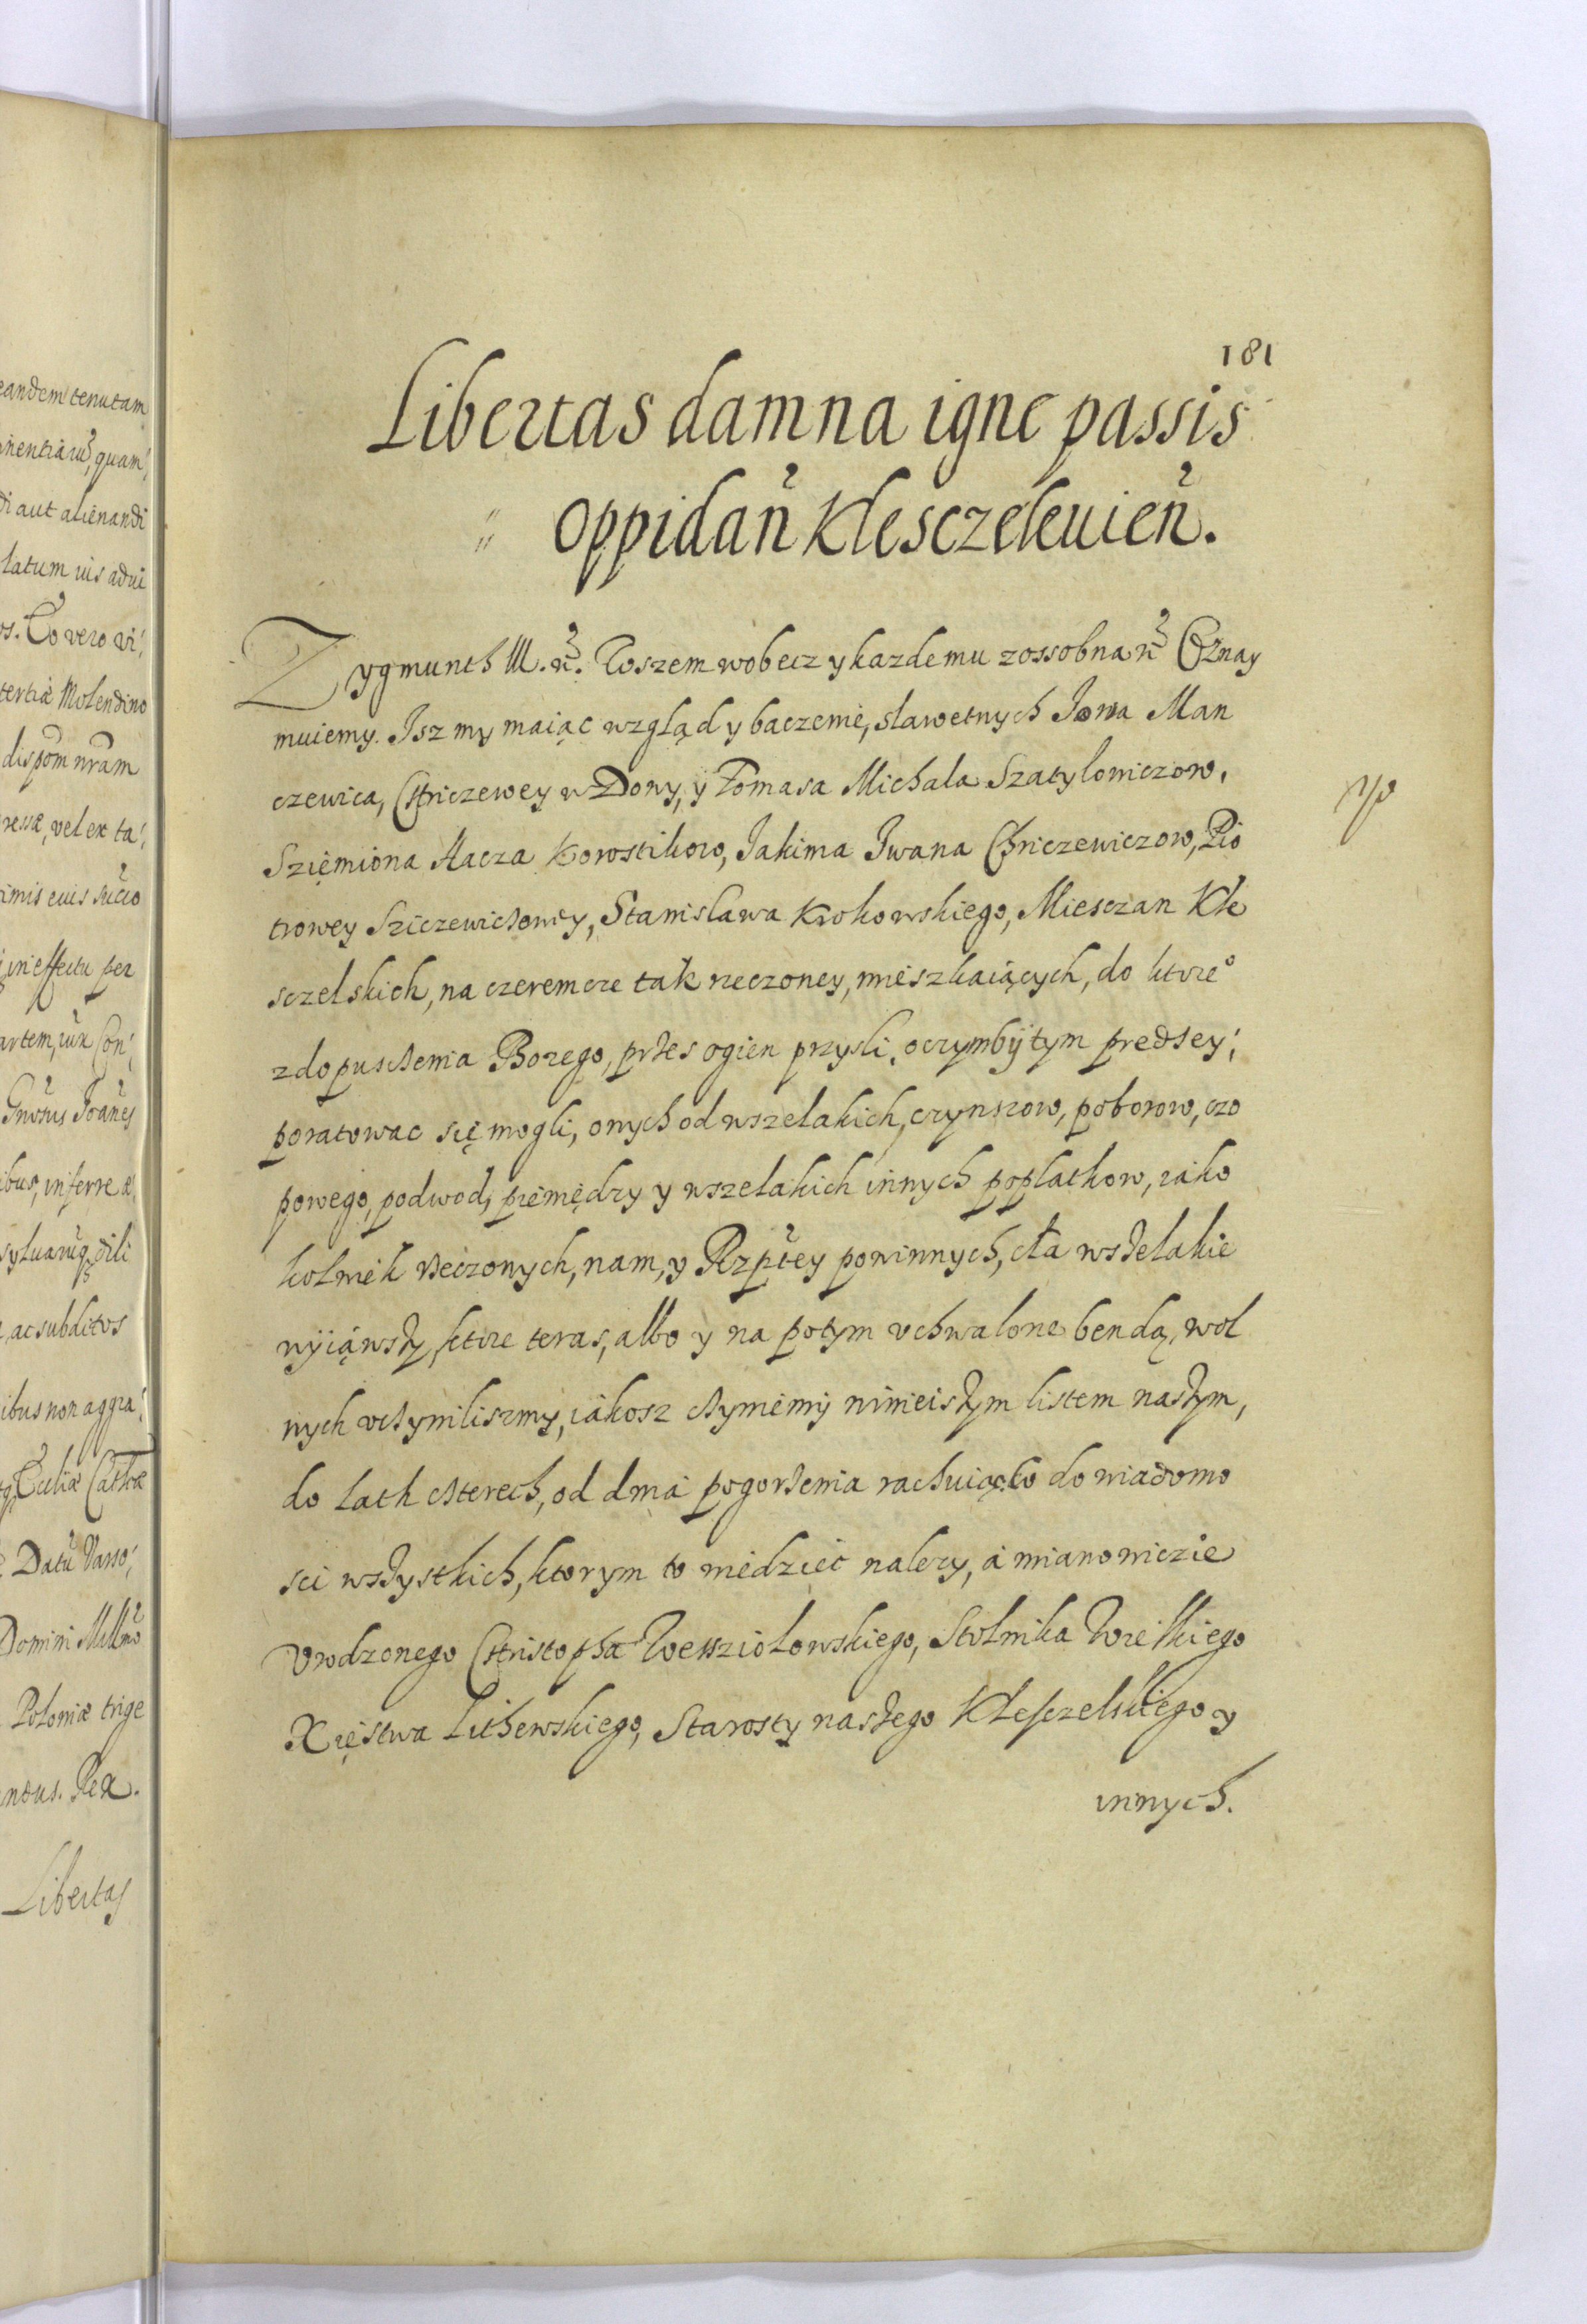 eandem tenutam
inentiarũ, quam
di aut alienandi
latum uis adui
os. Eo vero vi
tertiæ Molendino
dispõm nrãm
ressæ, vel ex ta
in effectu per
artem, iux Con
Gnosus Joañes
ibus, inferre
ac subditos
ibus non aggra
Datũ Varso
Domini Millmo
Poloniæ trige
Rex.
Libertas
181
Libertas damna igne passis
oppidan̄ Klesczelevien̄.
Zygmunth III. ñ. Wszem wobecz y kazdemu zossobna ñ Oznay
muiemy. Jsz my maiąc wzgląd y baczenie, slawetnych Jowa Man
czewica, Chriczewey wDowy, y Tomasa Michala Szatylowiczow,
Szięmiona Hacza Korostikow, Jakima Jwana Chriczewiczow, Pio
trowey Sziczewiczowey, Stanislawa Krokowskiego, Miesczan Kle
sczelskich, na czeremcze tak rzeczoney, mieszkaiących, do ktore°
z dopuszczenia Bozego, przes ogien przysli, o czymby tym predzey
poratowac się mogli, onych od wszelakich, czynszow, poborow, czo
powego, podwod, pieniędzy y wszelakich innych poplatkow, iako
kolwiek rzeczonych, nam, y Rzpltey powinnych, cła wszelakie
wyiąwszy, ktore teras, albo y na potym vchwalone bendą, wol
nych vczyniliszmy, iakosz czyniemy ninieiszym listem naszym,
do lath czterech, od dnia pogorzenia rachuiąc. Co do wiadomo
sci wszystkich, ktorym to wiedziec nalezy, a mianowiczie
Vrodzonego Christopha Wessziolowskiego, Stolnika Wielkiego
Xięstwa Lithewskiego, Starosty naszego Klesczelskiego y
innych.